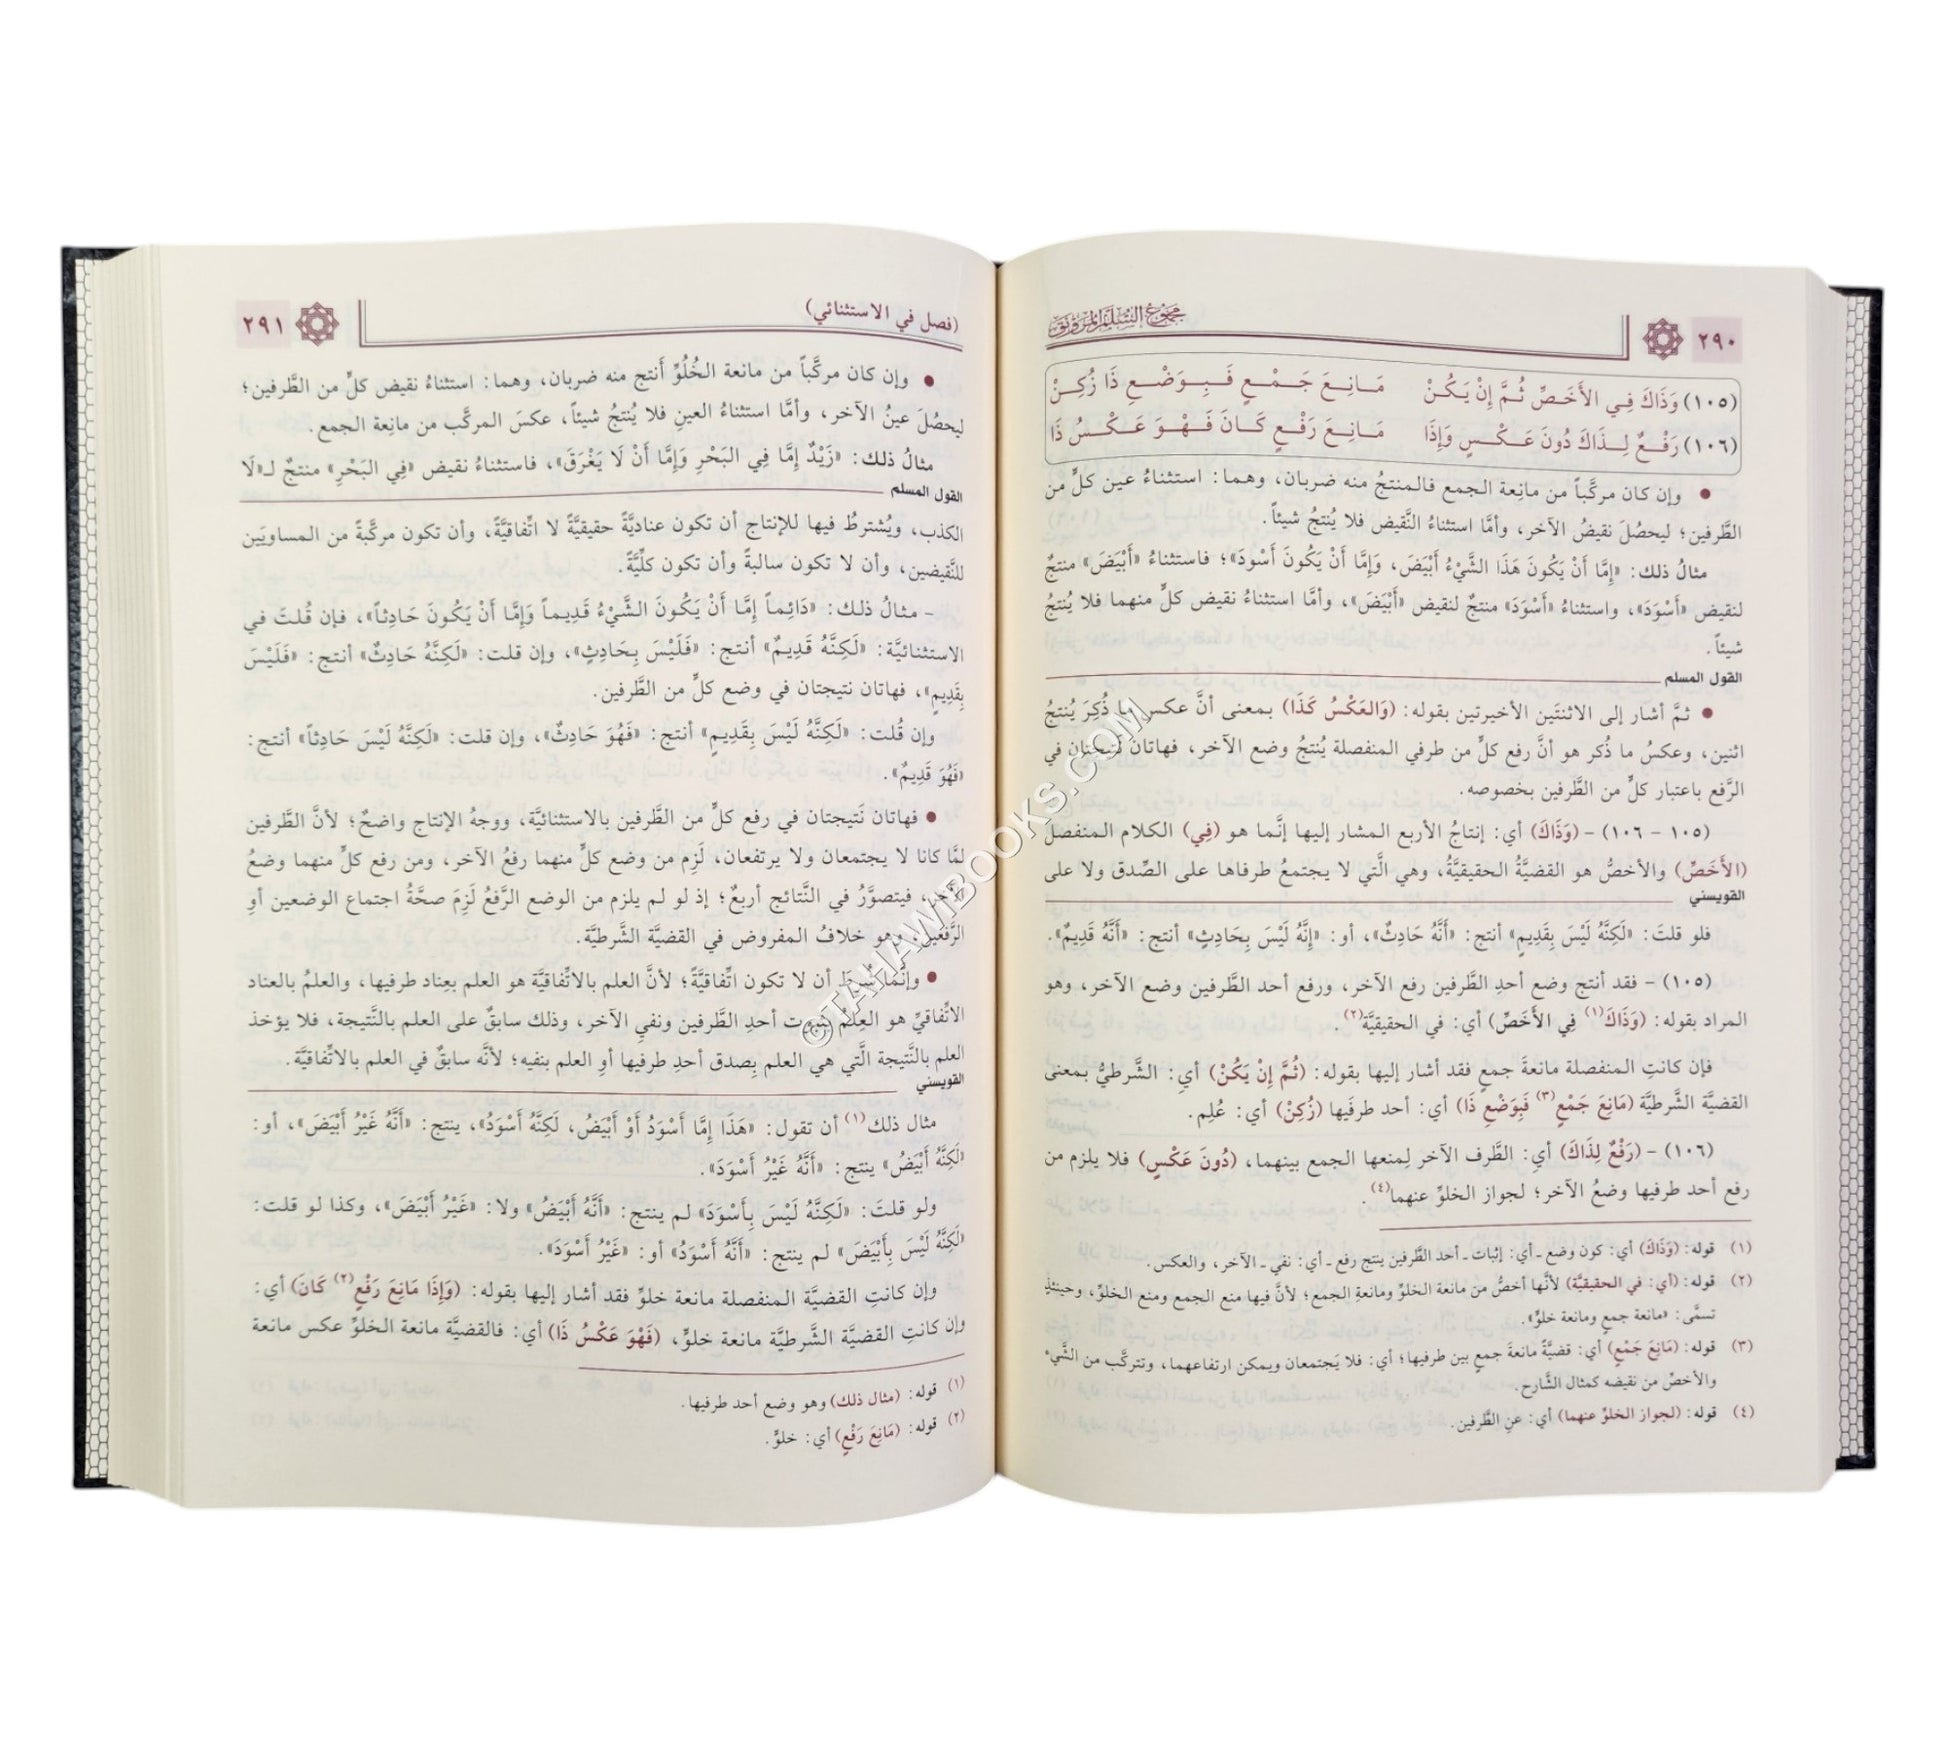 ٢٩٠
مجموع السلم المرونق
(١٠٥) وَذَاكَ فِي الأَخَصِّ ثُمَّ إِنْ يَكُنْ مَانِعَ جَمْعٍ فَبِوَضْعِ ذَا زُكِنْ
(١٠٦) رَفْعٌ لِذَاكَ دُونَ عَكْسٍ وَإِذَا مَانِعَ رَفْعٍ كَانَ فَهْوَ عَكْسُ ذَا
• وإن كان مركَّباً من مانِعة الجمع فالمنتجُ منه ضربان، وهما: استثناءُ عين كلٍّ من
الطَّرفين؛ ليحصُلَ نقيضُ الآخر، وأمَّا استثناءُ النَّقيض فلا يُنتجُ شيئاً.
مثالُ ذلك: «إِمَّا أَنْ يَكُونَ هَذَا الشَّيْءُ أَبْيَضَ، وَإِمَّا أَنْ يَكُونَ أَسْودَ»؛ فاستثناءُ «أَبْيَضَ» منتجٌ
لنقيض «أَسْوَدَ»، واستثناءُ «أَسْوَدَ» منتجٌ لنقيض «أَبْيَضَ»، وأمَّا استثناءُ نقيض كلٍّ منهما فلا يُنتجُ
شيئاً.
القول المسلم
• ثمَّ أشار إلى الاثنتَين الأخيرتين بقوله: (وَالعَكْسُ كَذَا) بمعنى أنَّ عكس ما ذُكِرَ يُنتجُ
اثنين، وعكسُ ما ذُكر هو أنَّ رفع كلٍّ من طرفي المنفصلة يُنتجُ وضع الآخر، فهاتان نَتيجتان في
الرَّفع باعتبار كلٍّ من الطَّرفين بخصوصه.
(١٠٥ - ١٠٦) - (وَذَاكَ) أي: إنتاجُ الأربع المشار إليها إنَّما هو (فِي) الكلام المنفصل
(الأَخَصِّ) والأخصُّ هو القضيَّةُ الحقيقيَّةُ، وهي الَّتي لا يجتمعُ طرفاها على الصِّدق ولا على
القويسني
فلو قلتَ: «لَكِنَّهُ لَيْسَ بِقَدِيمٍ» أنتج: «أَنَّهُ حَادِثٌ»، أو: «إِنَّهُ لَيْسَ بِحَادِثٍ» أنتج: «أَنَّهُ قَدِيمٌ».
(١٠٥) - فقد أنتج وضع أحدِ الطَّرفين رفع الآخر، ورفع أحد الطَّرفين وضع الآخر، وهو
المراد بقوله: (وَذَاكَ(١) فِي الأَخَصِّ) أي: في الحقيقيَّة(٢).
فإن كانتِ المنفصلة مانعةَ جمعٍ فقد أشار إليها بقوله: (ثُمَّ إِنْ يَكُنْ) أي: الشَّرطيُّ بمعنى
القضيَّة الشَّرطيَّة (مَانِعَ جَمْعٍ(٣) فَبِوَضْعِ ذَا) أي: أحد طرفَيها (زُكِنْ) أي: عُلِم.
(١٠٦) - (رَفْعٌ لِذَاكَ) أي: الطَّرف الآخر لِمنعها الجمع بينهما، (دُونَ عَكْسٍ) فلا يلزم من
رفع أحد طرفيها وضعُ الآخر؛ لجواز الخلوِّ عنهما(٤).
(١) قوله: (وَذَاكَ) أي: كون وضع ـ أي: إثبات ـ أحد الطَّرفين ينتج رفع ـ أي: نفي ـ الآخر، والعكس.
(٢) قوله: (أي: في الحقيقيَّة) لأنَّها أخصُّ من مانعة الخلوِّ ومانعةِ الجمع؛ لأنَّ فيها منع الجمع ومنع الخلوِّ، وحينئذٍ
تسمَّى: «مانعة جمعٍ ومانعة خلوٍّ».
(٣) قوله: (مَانِعَ جَمْعٍ) أي: قضيَّةً مانعةَ جمعٍ بين طرفيها؛ أي: فلا يَجتمعان ويمكن ارتفاعهما، وتتركَّب من الشَّيء
والأخصِّ من نقيضه كمثال الشَّارح.
(٤) قوله: (لجواز الخلوِّ عنهما) أي: عنِ الطَّرفين.
(فصل في الاستثنائي)
٢٩١
• وإن كان مركَّباً من مانعة الخُلُوِّ أَنتج منه ضربان، وهما: استثناءُ نقيض كلٍّ من الطَّرفين؛
ليحصُلَ عينُ الآخر، وأمَّا استثناءُ العينِ فلا يُنتجُ شيئاً، عكسَ المركَّب من مانِعة الجمع.
مثالُ ذلك: «زَيْدٌ إِمَّا فِي البَحْرِ وَإِمَّا أَنْ لَا يَغْرَقَ»، فاستثناءُ نقيض «فِي البَحْرِ» منتجٌ لـ«لَا
القول المسلم
الكذب، ويُشترطُ فيها للإنتاج أن تكون عناديَّةً حقيقيَّةً لا اتِّفاقيَّةً، وأن تكون مركَّبةً من المساويَين
للنَّقيضين، وأن لا تكون سالبةً وأن تكون كلِّيَّةً.
- مثالُ ذلك: «دَائِماً إِمَّا أَنْ يَكُونَ الشَّيْءُ قَدِيماً وَإِمَّا أَنْ يَكُونَ حَادِثاً»، فإن قُلتَ في
الاستثنائيَّة: «لَكِنَّهُ قَدِيمٌ» أنتج: «فَلَيْسَ بِحَادِثٍ»، وإن قلت: «لَكِنَّهُ حَادِثٌ» أنتج: «فَلَيْسَ
بِقَدِيمٍ»، فهاتان نتيجتان في وضع كلٍّ من الطَّرفين.
وإن قُلت: «لَكِنَّهُ لَيْسَ بِقَدِيمٍ» أنتج: «فَهُوَ حَادِثٌ»، وإن قلت: «لَكِنَّهُ لَيْسَ حَادِثاً» أنتج:
«فَهُوَ قَدِيمٌ».
• فهاتان نَتيجتان في رفع كلٍّ من الطَّرفين بالاستثنائيَّة، ووجهُ الإنتاج واضحٌ؛ لأنَّ الطَّرفين
لمَّا كانا لا يجتمعان ولا يرتفعان، لَزِم من وضع كلٍّ منهما رفعُ الآخر، ومن رفع كلٍّ منهما وضعُ
الآخر، فيتصوَّرُ في النَّتائج أربعٌ؛ إذ لو لم يلزم من الوضع الرَّفعُ لَزِمَ صحَّةُ اجتماع الوضعين أوِ
الرَّفعين، وهو خلافُ المفروض في القضيَّة الشَّرطيَّة.
• وإنَّما شُرِطَ أن لا تكون اتِّفاقيَّةً؛ لأنَّ العلم بالاتِّفاقيَّة هو العلم بعِناد طرفيها، والعلمُ بالعناد
الاتِّفاقيِّ هو العِلمُ بثبوت أحدِ الطَّرفين ونفيِ الآخر، وذلك سابقٌ على العلم بالنَّتيجة، فلا يؤخذ
العلم بالنَّتيجة الَّتي هي العلم بِصدق أحدِ طرفيها أوِ العلم بنفيه؛ لأنَّه سابقٌ في العلم بالاتِّفاقيَّة.
القويسني
مثال ذلك(١) أن تقول: «هَذَا إِمَّا أَسْوَدُ أَوْ أَبْيَضُ، لَكِنَّهُ أَسْوَدُ»، ينتج: «أَنَّهُ غَيْرُ أَبْيَضَ»، أو:
«لَكِنَّهُ أَبْيَضُ» ينتج: «أَنَّهُ غَيْرُ أَسْوَدَ».
ولو قلتَ: «لَكِنَّهُ لَيْسَ بِأَسْوَدَ» لم ينتج: «أَنَّهُ أَبْيَضُ» ولا: «غَيْرُ أَبْيَضَ»، وكذا لو قلت:
«لَكِنَّهُ لَيْسَ بِأَبْيَضَ» لم ينتج: «أَنَّهُ أَسْوَدُ» أو: «غَيْرُ أَسْوَدَ».
وإن كانتِ القضيَّة المنفصلة مانعة خلوٍّ فقد أشار إليها بقوله: (وَإِذَا مَانِعَ رَفْعٍ(٢) كَانَ) أي:
وإن كانتِ القضيَّة الشَّرطيَّة مانعة خلوٍّ، (فَهْوَ عَكْسُ ذَا) أي: فالقضيَّة مانعة الخلوِّ عكس مانعة
(١) قوله: (مثال ذلك) وهو وضع أحد طرفيها.
(٢) قوله: (مَانِعَ رَفْعٍ) أي: خلوٍّ.
©TAHAWIBOOKS.COM